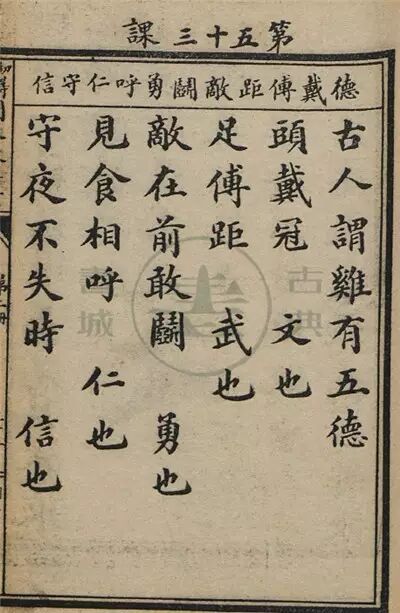 第五十三課
德戴傅距敵鬭勇呼仁守信
古人謂雞有五德
頭戴冠 文也
足傅距 武也
敵在前敢鬭 勇也
見食相呼 仁也
守夜不失時 信也
古典
書城